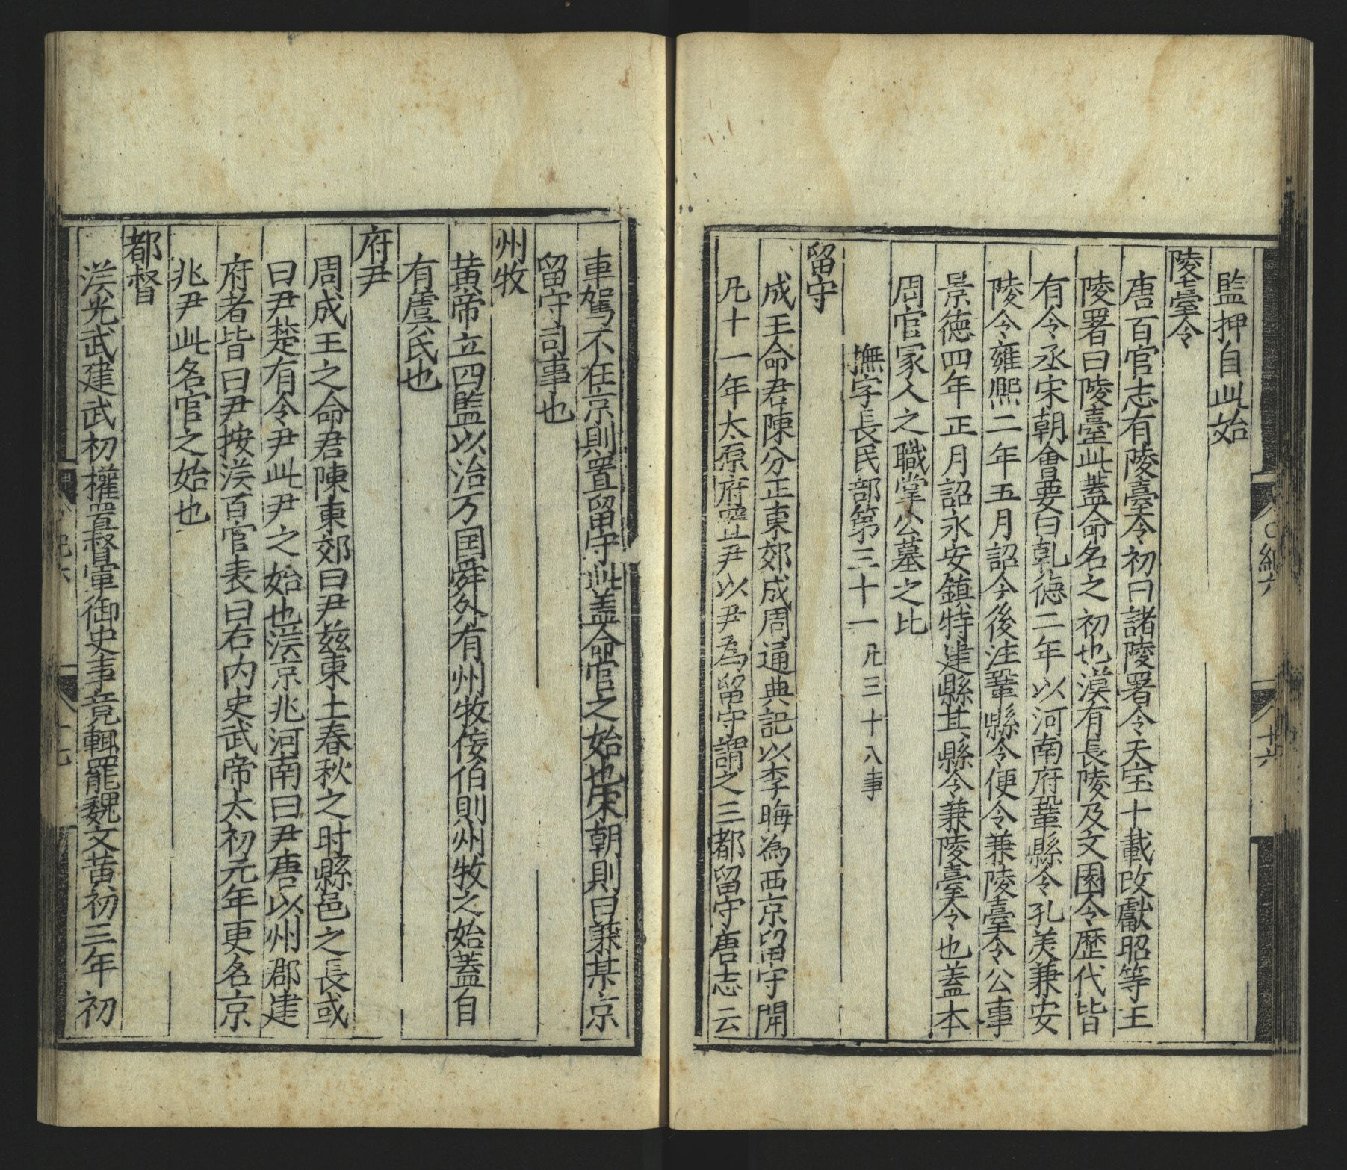 監押自此始
陵臺令
唐百官志有陵臺令初曰諸陵署令天宝十載改獻昭等王
陵署曰陵臺此蓋命名之初也漢有長陵及文園令歷代皆
有令丞宋朝會要曰乹德二年以河南府鞏縣令孔美兼安
陵令雍熙二年五月詔今後注鞏縣令便令兼陵臺令公事
景德四年正月詔永安鎮特建縣其縣令兼陵臺令也蓋本
周官冢人之職掌公墓之比
撫字長民部第三十一凡三十八事
留守
成王命君陳分正東郊成周通典記以李晦為西京留守開
元十一年太原府置尹以尹為留守謂之三都留守唐志云
車駕不在京則置留守此盖命官之始也宋朝則曰兼某京
留守司事也
州牧
黃帝立四監以治万囯舜外有州牧侯伯則州牧之始蓋自
有虞氏也
府尹
周成王之命君陳東郊曰尹茲東土春秋之时縣邑之長或
曰尹楚有令尹此尹之始也漢京兆河南曰尹唐以州郡建
府者皆曰尹按漢百官表曰右内史武帝太初元年更名京
兆尹此名官之始也
都督
漢光武建武初權置督軍御史事竟輒罷魏文黃初三年初
紀六
十六